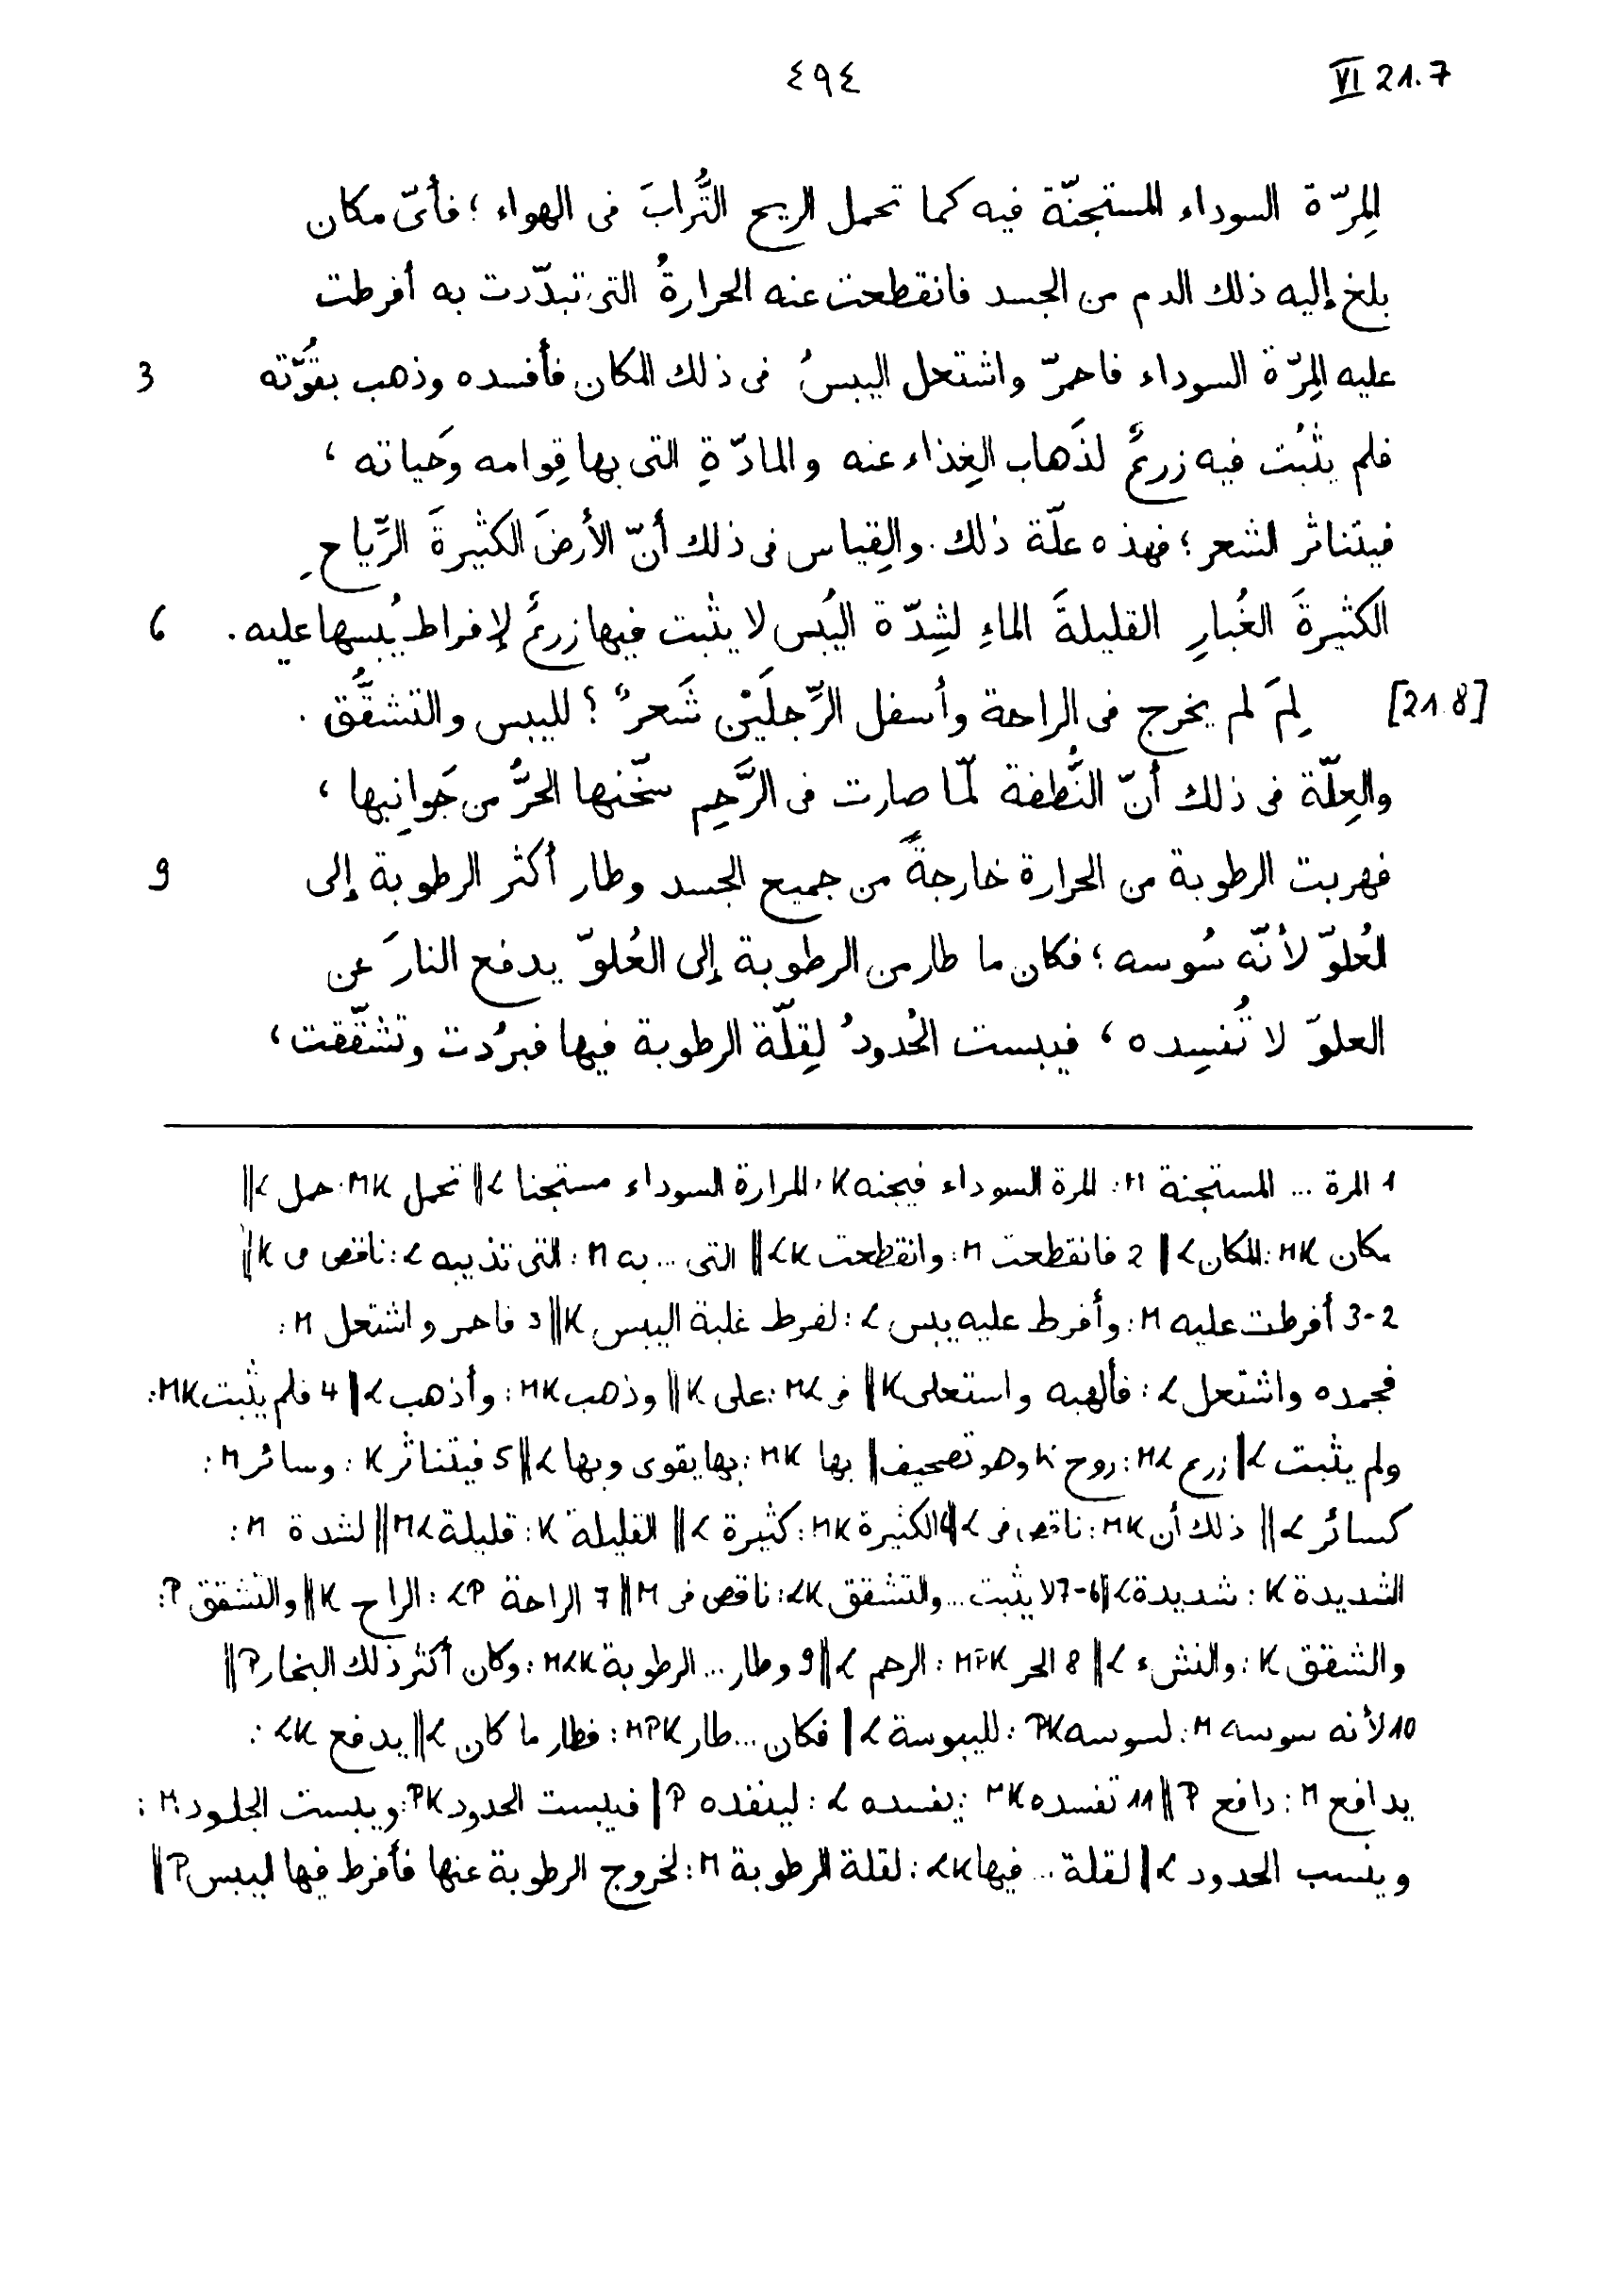 ٤٩٤ VI 21.7
للمِرّة السوداء المستجنّة فيه كما تحمل الريح التُّرابَ فى الهواء ؛ فأىّ مكان
بلغ إليه ذلك الدم من الجسد فانقطعت عنه الحرارةُ التى تبدّرت به أفرطت
عليه المِرّة السوداء فاحمرّ واشتعل اليبسُ فى ذلك المكان فأفسده وذهب بقُوّته 3
فلم يثبُت فيه زرعٌ لذَهاب الغِذاء عنه والمادّةِ التى بها قِوامه وحَياته ،
فيتناثر الشعر ؛ فهذه علّة ذلك . والقِياس فى ذلك أنّ الأرضَ الكثيرةَ الرِّياحِ
الكثيرةَ الغُبارِ القليلةَ الماءِ لشِدّة اليُبس لا يثبت فيها زرعٌ لإفراط يُبسها عليه . 6
[21.8] لِمَ لم يخرج فى الراحة وأسفل الرِّجلَيْن شَعرٌ ؟ لليبس والتشقُّق .
والعِلّة فى ذلك أنّ النُّطفة لمّا صارت فى الرَّحِم سخّنها الحَرُّ من جَوانِبها ،
فهربت الرطوبة من الحرارة خارجةً من جميع الجسد وطار أكثر الرطوبة إلى 9
العُلوّ لأنّه سُوسه ؛ فكان ما طار من الرطوبة إلى العُلوّ يدفع النارَ عن
العلوّ لا تُفسِده ، فيبست الحُدودُ لِقلّة الرطوبة فيها فبرُدت وتشقّقت ،
1 المرة ... المستجنة M : للمرة السوداء فيجنه K ، للمرارة السوداء مستجنا L || تحمل MK : حمل L ||
مكان MK : المكان L || 2 فانقطعت M : وانقطعت LK || التى ... به M : التى تذيبه L : ناقص من K ||
3-2 أفرطت عليه M : وأفرط عليه يبس L : لفرط غلبة اليبس K || 3 فاحمر واشتعل M :
فجمده واشتعل L : فألهبه واستعلى K || فى ML : على K || وذهب MK : وأذهب L || 4 فلم يثبت MK :
ولم يثبت L || زرع ML : روح K وهو تصحيف || بها MK : بها يقوى وبها L || 5 فيتناثر K : وسائر M :
كسائر L || ذلك أن MK : ناقص فى L || 6 الكثيرة MK : كثيرة L || القليلة K : قليلة ML || لشدة M :
الشديدة K : شديدة L || 6-7 لا يثبت ... والتشقق LK : ناقص فى M || 7 الراحة LP : الراح K || والتشقق P :
والشقق K : والنشىء L || 8 الحر MPK : الرحم L || 9 وطار ... الرطوبة MLK : وكان أكثر ذلك البخار P ||
10 لأنه سوسه M : لسوسه PK : لليبوسة L || فكان ... طار MPK : فطار ما كان L || يدفع LK :
يدافع M : دافع P || 11 تفسده MK : يفسده L : لينفده P || فيبست الحدود PK : ويبست الجلود M :
وينسب الحدود L || لقلة ... فيها LK : لقلة الرطوبة M : لخروج الرطوبة عنها فأفرط فيها اليبس P ||